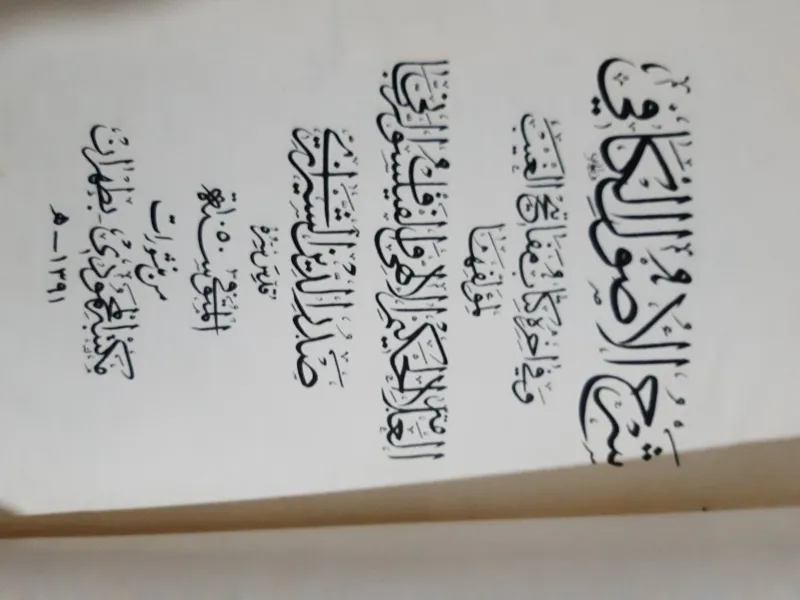 شرح الاصول الكافي
وفي آخره كتاب مفاتيح الغيب
لمؤلفهما
العلامة الحكيم الالهي والفيلسوف الرباني
صدر الدين الشيرازي
قدس سره
المتوفى سنة ١٠٥٠ هـ
من منشورات
مكتبة المحمودي بطهران
١٣٩١ - هـ